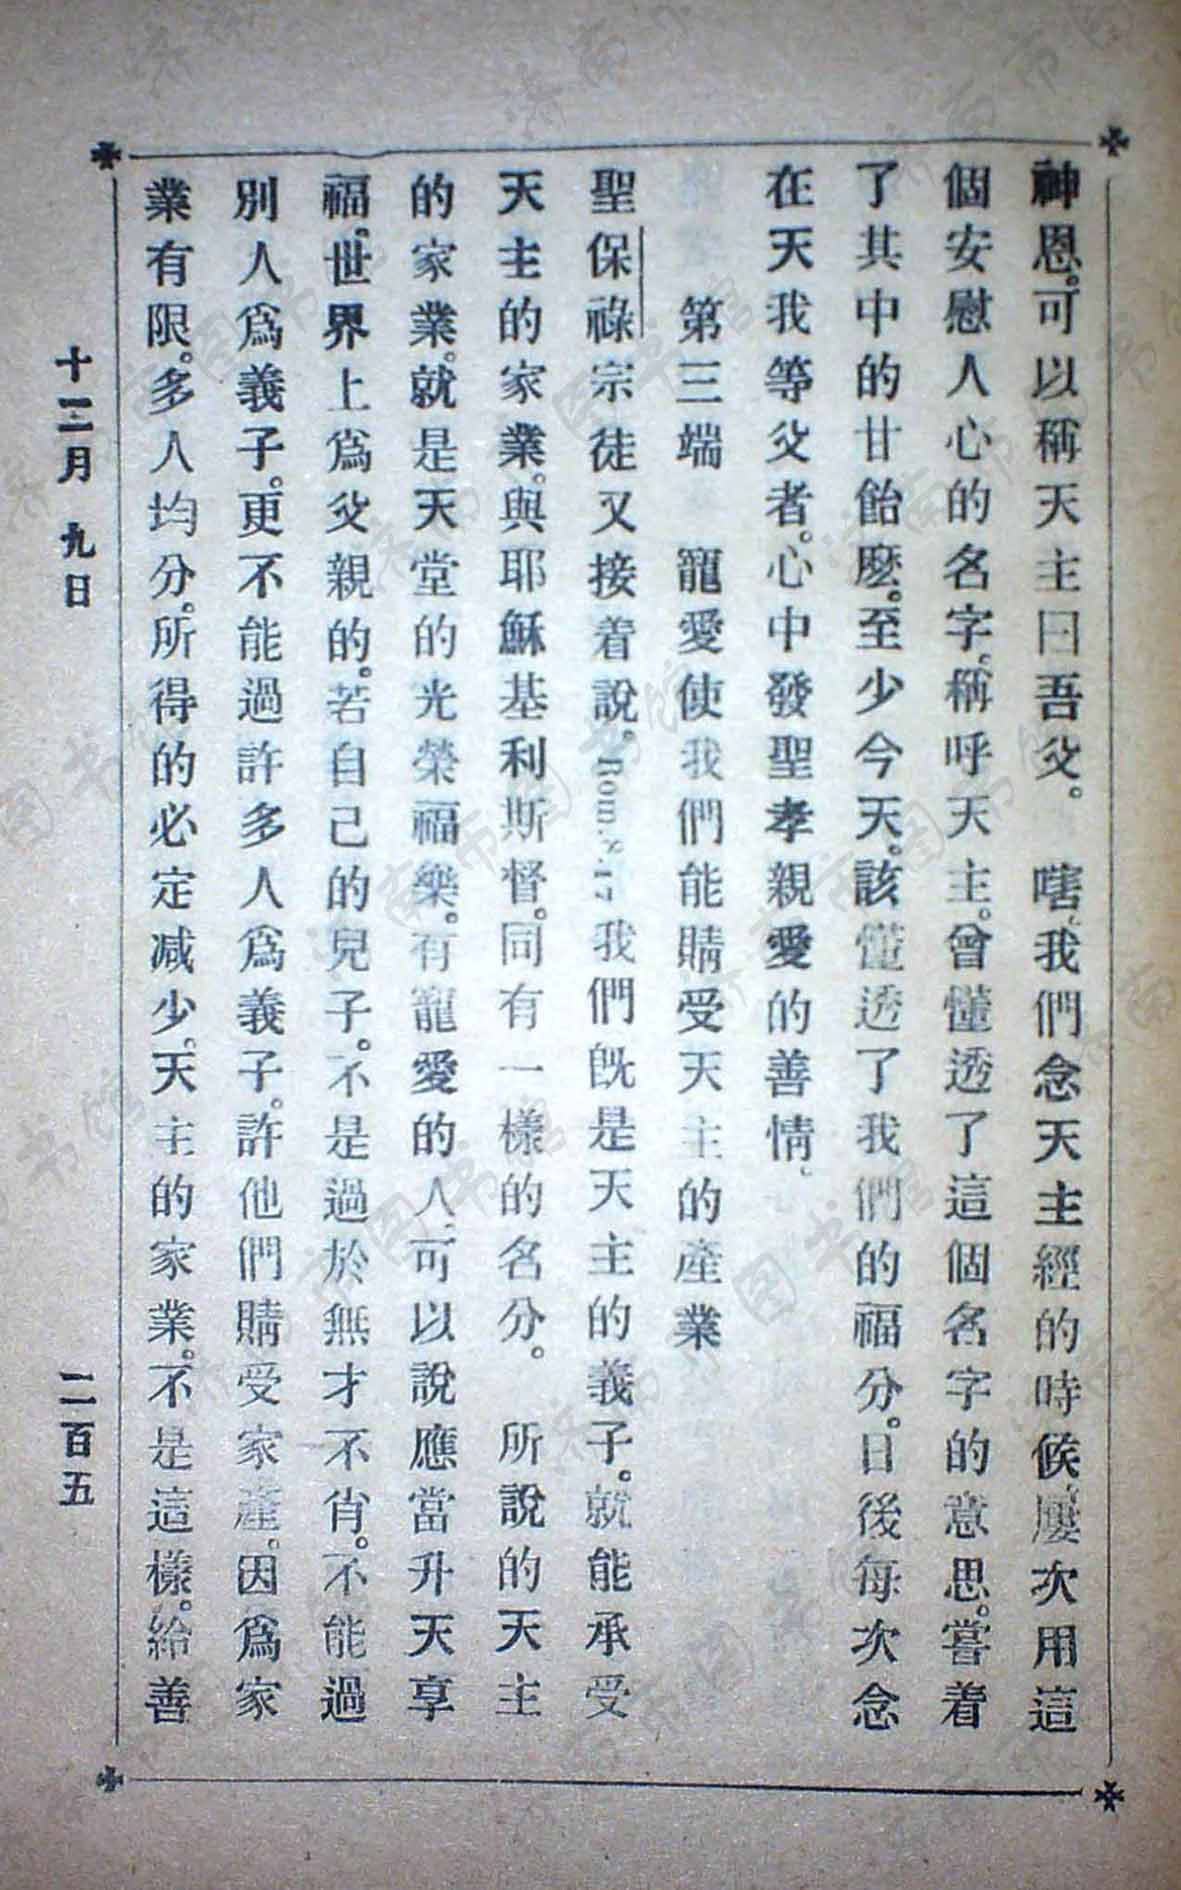 神恩。可以稱天主曰吾父。　嗐、我們念天主經的時候、屢次用這
個安慰人心的名字。稱呼天主。曾懂透了這個名字的意思。嘗着
了其中的甘飴麽。至少今天。該懂透了我們的福分。日後每次念
在天我等父者。心中發聖孝親愛的善情、
第三端　寵愛使我們能賙受天主的產業
聖保祿宗徒又接着說。Rom.8.17我們旣是天主的義子。就能承受
天主的家業。與耶穌基利斯督。同有一樣的名分。　所說的天主
的家業。就是天堂的光榮福樂。有寵愛的人、可以說應當升天享
福。世界上爲父親的。若自己的兒子。不是過於無才不肖。不能過
別人爲義子。更不能過許多人爲義子。許他們賙受家產。因爲家
業有限。多人均分。所得的必定減少、天主的家業。不是這樣。給善
十二月 九日
二百五
济南市图书馆